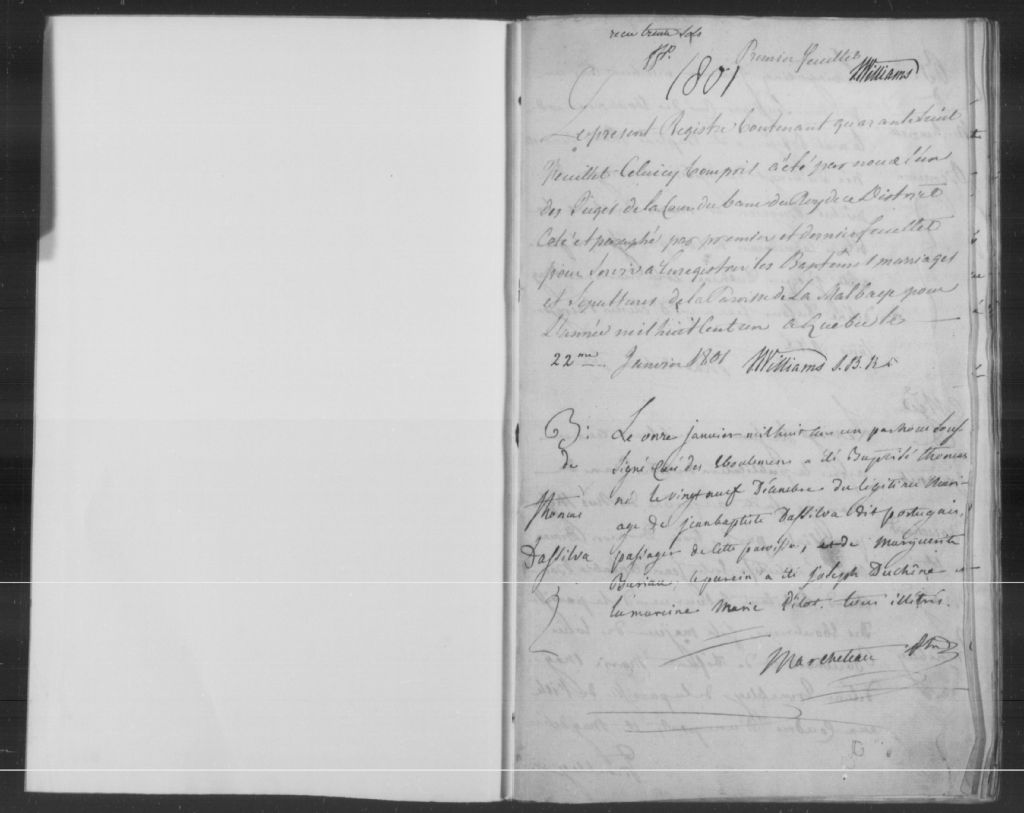 recu trente sols
Premier feuillet
1801 Williams
Le present Registre Contenant quarante huit
feuillet Celuicy Compris a été par nous l'un
des Juges de la Cour du banc du Roy de ce District
Coté et paraphé par premier et dernier feuillet
pour servir a Enregistrer les Baptêmes mariages
et Sepultures de la Paroisse de La Malbaye pour
L'année mil huit Cent un a Quebec le
22me Janvier 1801 Williams J. B. R.
B: Le onze janvier mil huit cens un par nous souf
de signé Curé des Eboulemens a été Baptisé thomas
né le vingt neuf Décembre du légitime mari
Thomas age de jean baptiste Dassilva dit portugais,
Dassilva passager de cette paroisse, et de Marguerite
Buriau, le parein a été joseph Duchêne et
la mareine Marie Pilot. tous illitrés.
Marcheteau Ptre